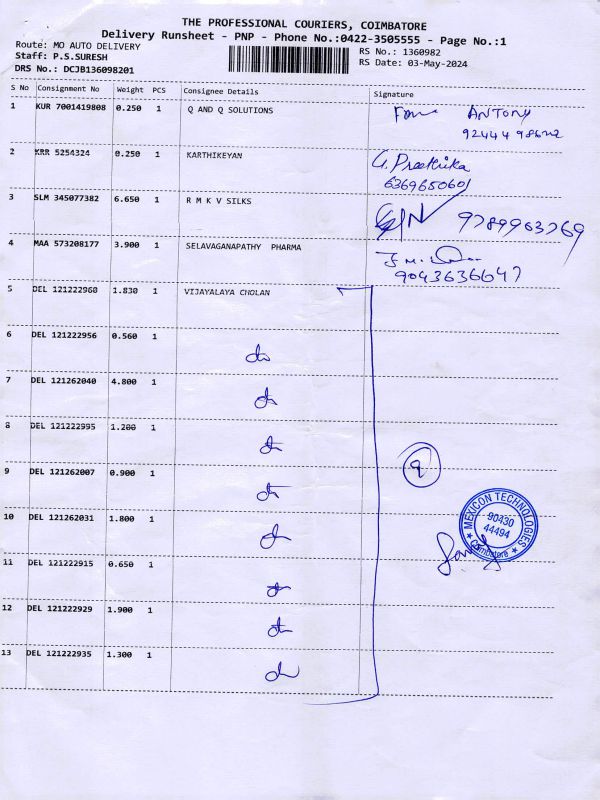 THE PROFESSIONAL COURIERS, COIMBATORE
Delivery Runsheet - PNP - Phone No.:0422-3505555 - Page No.:1
Route: MO AUTO DELIVERY
Staff: P.S.SURESH
DRS No.: DCJB136098201
RS No.: 1360982
RS Date: 03-May-2024
S No Consignment No Weight PCS Consignee Details Signature
1 KUR 7001419808 0.250 1 Q AND Q SOLUTIONS ANTONY
2 KRR 5254324 0.250 1 KARTHIKEYAN G. Preethika
6369650601
3 SLM 345077382 6.650 1 R M K V SILKS 9789963769
4 MAA 573208177 3.900 1 SELAVAGANAPATHY PHARMA
9043636647
5 DEL 121222960 1.830 1 VIJAYALAYA CHOLAN
6 DEL 121222956 0.560 1
do
7 DEL 121262040 4.800 1
do
8 DEL 121222995 1.200 1
do
9 DEL 121262007 0.900 1
do
10 DEL 121262031 1.800 1
do
11 DEL 121222915 0.650 1
do
12 DEL 121222929 1.900 1
do
13 DEL 121222935 1.300 1
do
9
MEXICON TECHNOLOGIES
90430
44494
Coimbatore